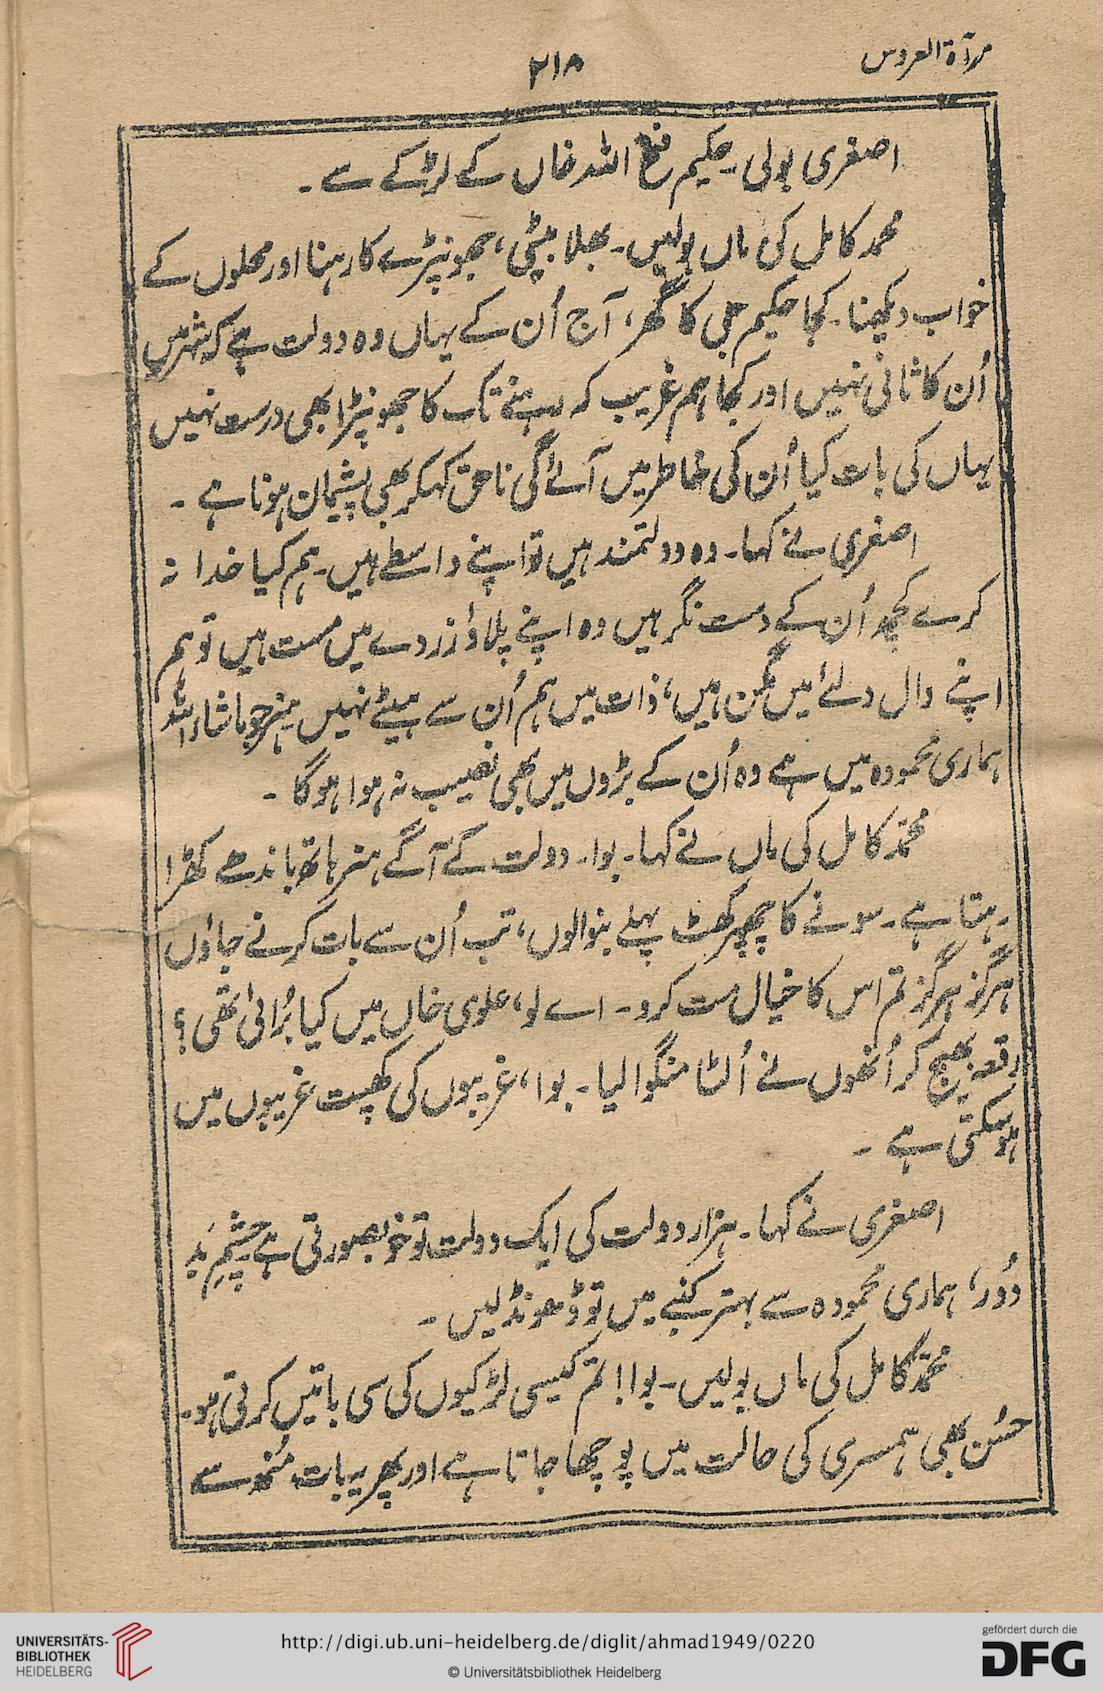 مرآۃ العروس
۲۱۸
اصغری بولی۔ حکیم فتح اللہ خاں کے لڑکے سے۔
محمد کامل کی ماں بولیں۔ بھلا بیٹی، جھونپڑے کا رہنا اور محلوں کے
خواب دیکھنا۔ کجا حکیم جی کا گھر، آج اُن کے یہاں وہ دولت ہے کہ شہر میں
اُن کا ثانی نہیں اور کجا ہم غریب کہ رہنے تک کا جھونپڑا بھی درست نہیں
یہاں کی بات کیا اُن کی خاطر میں آئے گی ناحق کہکر بھی پشیمان ہونا ہے۔
اصغری نے کہا۔ وہ دولتمند ہیں تو اپنے واسطے ہیں۔ ہم کیا خدا نہ
کرے کچھ اُن کے دست نگر ہیں وہ اپنے پلاؤ زردے میں مست ہیں تو ہم
اپنے دال دلئے میں مگن ہیں، ذات میں ہم اُن سے ہیٹے نہیں ہنر جو ماشاء اللہ
ہماری محمودہ میں ہے وہ اُن کے بڑوں میں بھی نصیب نہ ہوا ہوگا۔
محمد کامل کی ماں نے کہا۔ بوا۔ دولت کے آگے ہنر ہاتھ باندھے کھڑا
رہتا ہے۔ سونے کا چھپرکھٹ پہلے بنوالوں، تب اُن سے بات کرنے جاؤں
ہرگز ہرگز تم اس کا خیال مت کرو۔ اے لو، علوی خاں میں کیا بُرائی تھی؟
رقعہ بھیج کر اُنھوں نے اُلٹا منگوالیا۔ بوا، غریبوں کی کھپت غریبوں میں
ہوسکتی ہے۔
اصغری نے کہا۔ ہزار دولت کی ایک دولت تو خوبصورتی ہے چشمِ بَد
دُور، ہماری محمودہ سے بہتر کُنبے میں تو ڈھونڈلیں۔
محمد کامل کی ماں بولیں۔ بوا! تم کیسی لڑکیوں کی سی باتیں کرتی ہو۔
حُسن بھی ہمسری کی حالت میں پوچھا جاتا ہے اور پھر یہ بات مُنھ سے
UNIVERSITÄTS-
BIBLIOTHEK
HEIDELBERG
http://digi.ub.uni-heidelberg.de/diglit/ahmad1949/0220
© Universitätsbibliothek Heidelberg
gefördert durch die
DFG